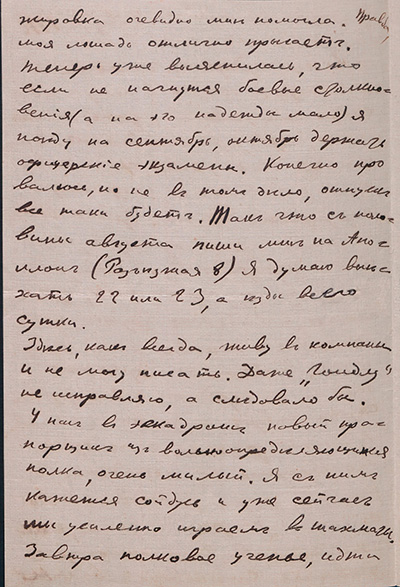 жировка очевидно мнѣ помогла. Правда,
моя лошадь отлично прыгаетъ.
Теперь уже выяснилось, что
если не начнутся боевые столкно-
венія (а на это надежды мало) я
поѣду на сентябрь, октябрь держать
офицерскіе экзамены. Конечно про
валюсь, но не въ томъ дѣло, отпускъ
все таки будетъ. Такъ что съ поло-
вины августа пиши мнѣ на Апо-
ллонъ (Разъѣзжая 8) Я думаю выѣ-
хать 22 или 23, а ѣзды всего
сутки.
Здѣсь, какъ всегда, живу въ компаніи
и не могу писать. Даже „Гондлу"
не исправляю, а слѣдовало бы.
У насъ въ эскадронѣ новый пра-
порщикъ изъ вольноопредѣляющихся
полка, очень милый. Я съ нимъ
кажется сойдусь и уже сейчасъ
мы усиленно играемъ въ шахматы.
Завтра полковое ученье, идти